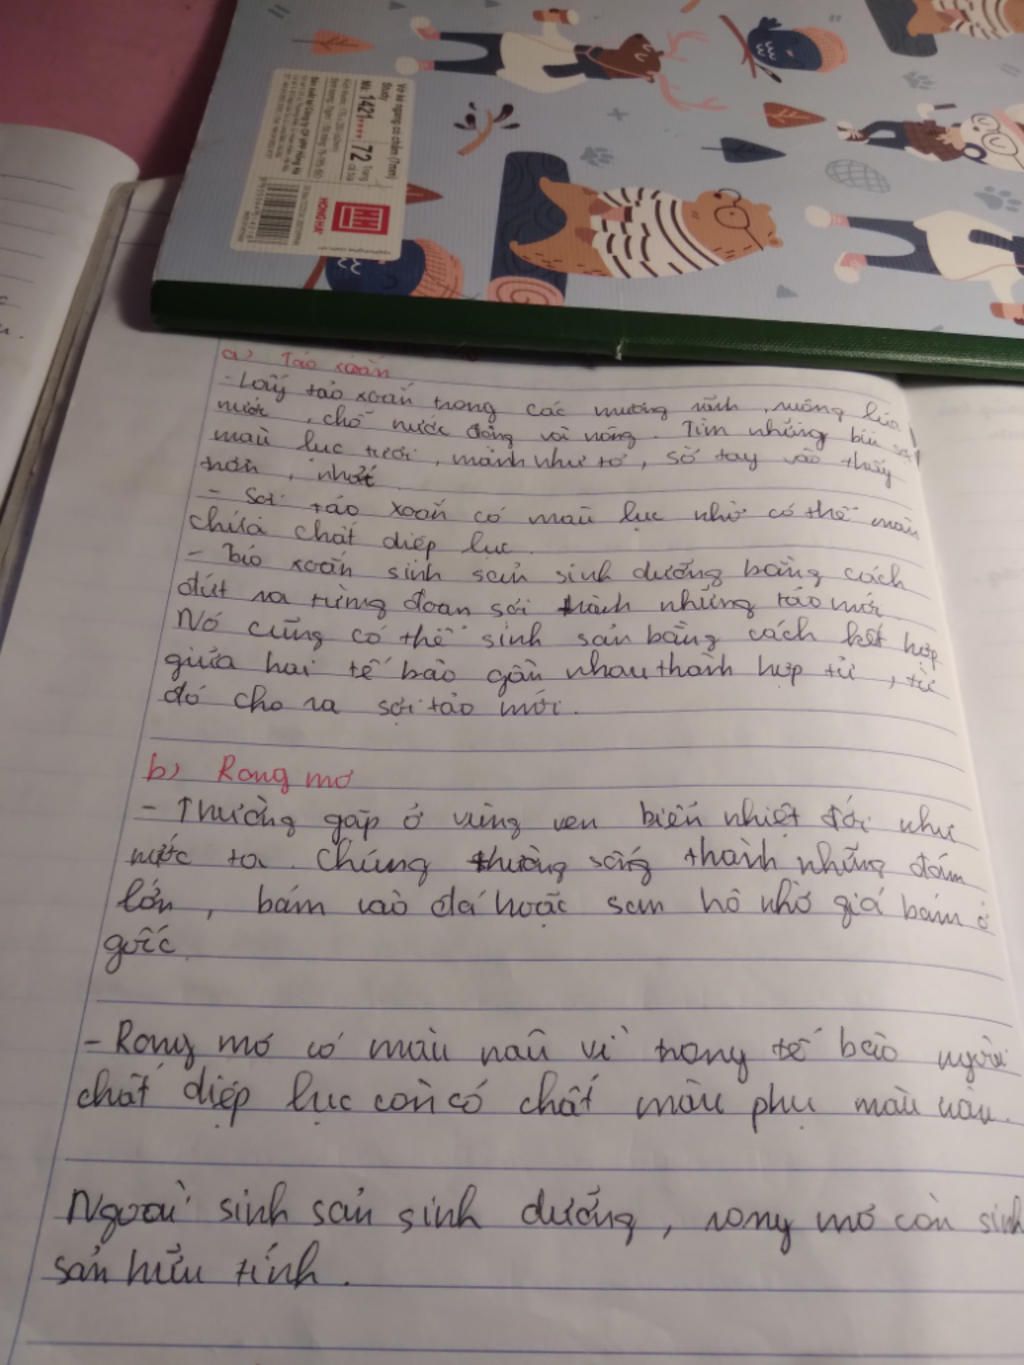 Vở kẻ ngang có chấm (7mm)
Study
Mã: 1421
72 Trang
HONG HA
a) Tảo xoắn
- Lấy tảo xoắn trong các mương rãnh, ruộng lúa
nước, chỗ nước đọng và nông. Tìm những búi sợi
màu lục tươi, mảnh như tơ, sờ tay vào thấy
trơn, nhớt
- Sợi tảo xoắn có màu lục nhờ có thể màu
chứa chất diệp lục.
- Tảo xoắn sinh sản sinh dưỡng bằng cách
đứt ra từng đoạn sợi thành những tảo mới
Nó cũng có thể sinh sản bằng cách kết hợp
giữa hai tế bào gần nhau thành hợp tử, từ
đó cho ra sợi tảo mới.
b) Rong mơ
- Thường gặp ở vùng ven biển nhiệt đới như
nước ta. Chúng thường sống thành những đám
lớn, bám vào đá hoặc san hô nhờ giá bám ở
gốc.
- Rong mơ có màu nâu vì trong tế bào ngoài
chất diệp lục còn có chất màu phụ màu nâu.
Ngoài sinh sản sinh dưỡng, rong mơ còn sinh
sản hữu tính.